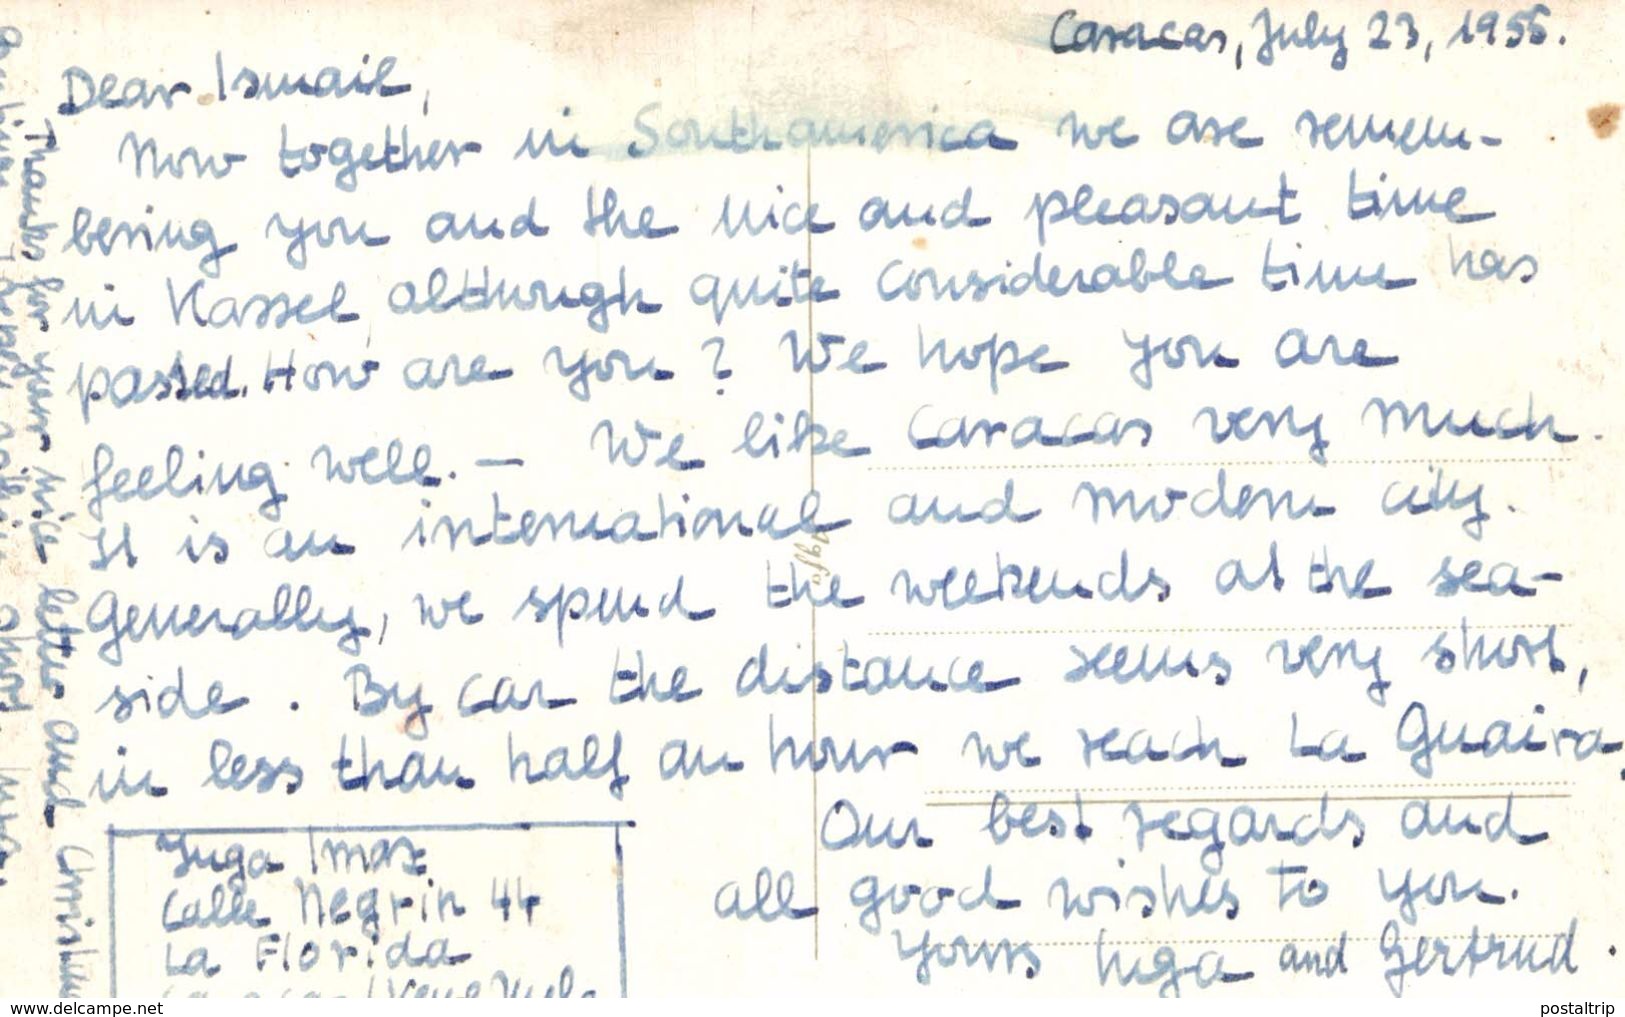 Caracas, July 23, 1955.
Dear Ismail,
Now together in Southamerica we are remem-
bering you and the nice and pleasant time
in Kassel, although quite considerable time has
passed. How are you? We hope you are
feeling well. — We like Caracas very much.
It is an international and modern city.
Generally, we spend the weekends at the sea-
side. By car the distance seems very short,
in less than half an hour we reach La Guaira,
Our best regards and
all good wishes to you.
Yours Inga and Gertrud.
Inga Imax
Calle Negrin 44
La Florida
Caracas/Venezuela
Thanks for your nice letter and Christmas
www.delcampe.net
postaltrip